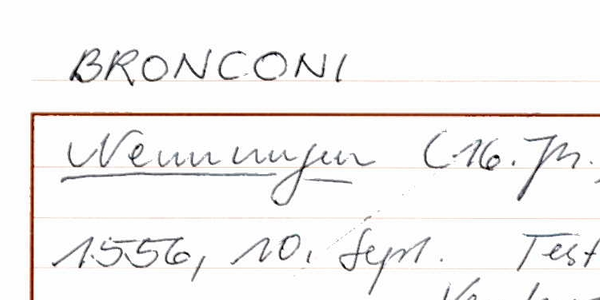 BRONCONI
Nennungen (16. Jh.,
1556, 10. Sept. Test